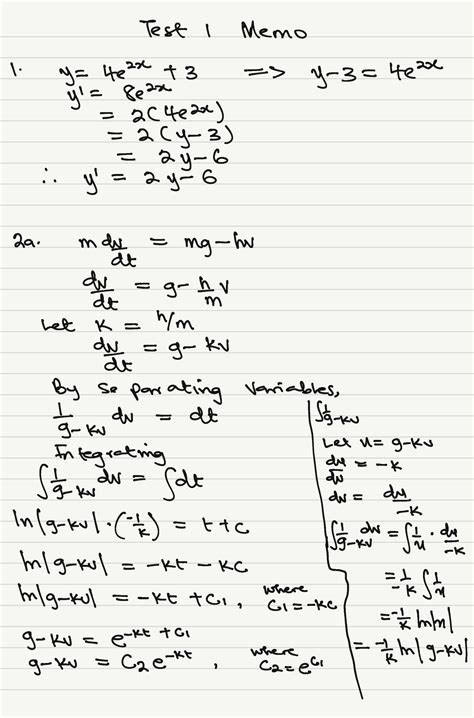 Test 1 Memo
1. y = 4e^{2x} + 3 ⟹ y-3 = 4e^{2x}
y' = 8e^{2x}
= 2(4e^{2x})
= 2(y-3)
= 2y-6
∴ y' = 2y-6
2a. m dv/dt = mg-hv
dv/dt = g - h/m v
Let K = h/m
dv/dt = g - kv
By separating variables,
1/g-kv dv = dt
Integrating
∫ 1/g-kv dv = ∫dt
ln|g-kv|·(-1/k) = t+c
ln|g-kv| = -kt - kc
ln|g-kv| = -kt + c1, where c1 = -kc
g-kv = e^{-kt + c1}
g-kv = C2 e^{-kt}, where C2 = e^{c1}
∫ 1/g-kv
Let u = g-kv
du/dv = -k
dv = du/-k
∫ 1/g-kv dv = ∫ 1/u · du/-k
= 1/-k ∫ 1/u
= -1/k ln|u|
= -1/k ln|g-kv|